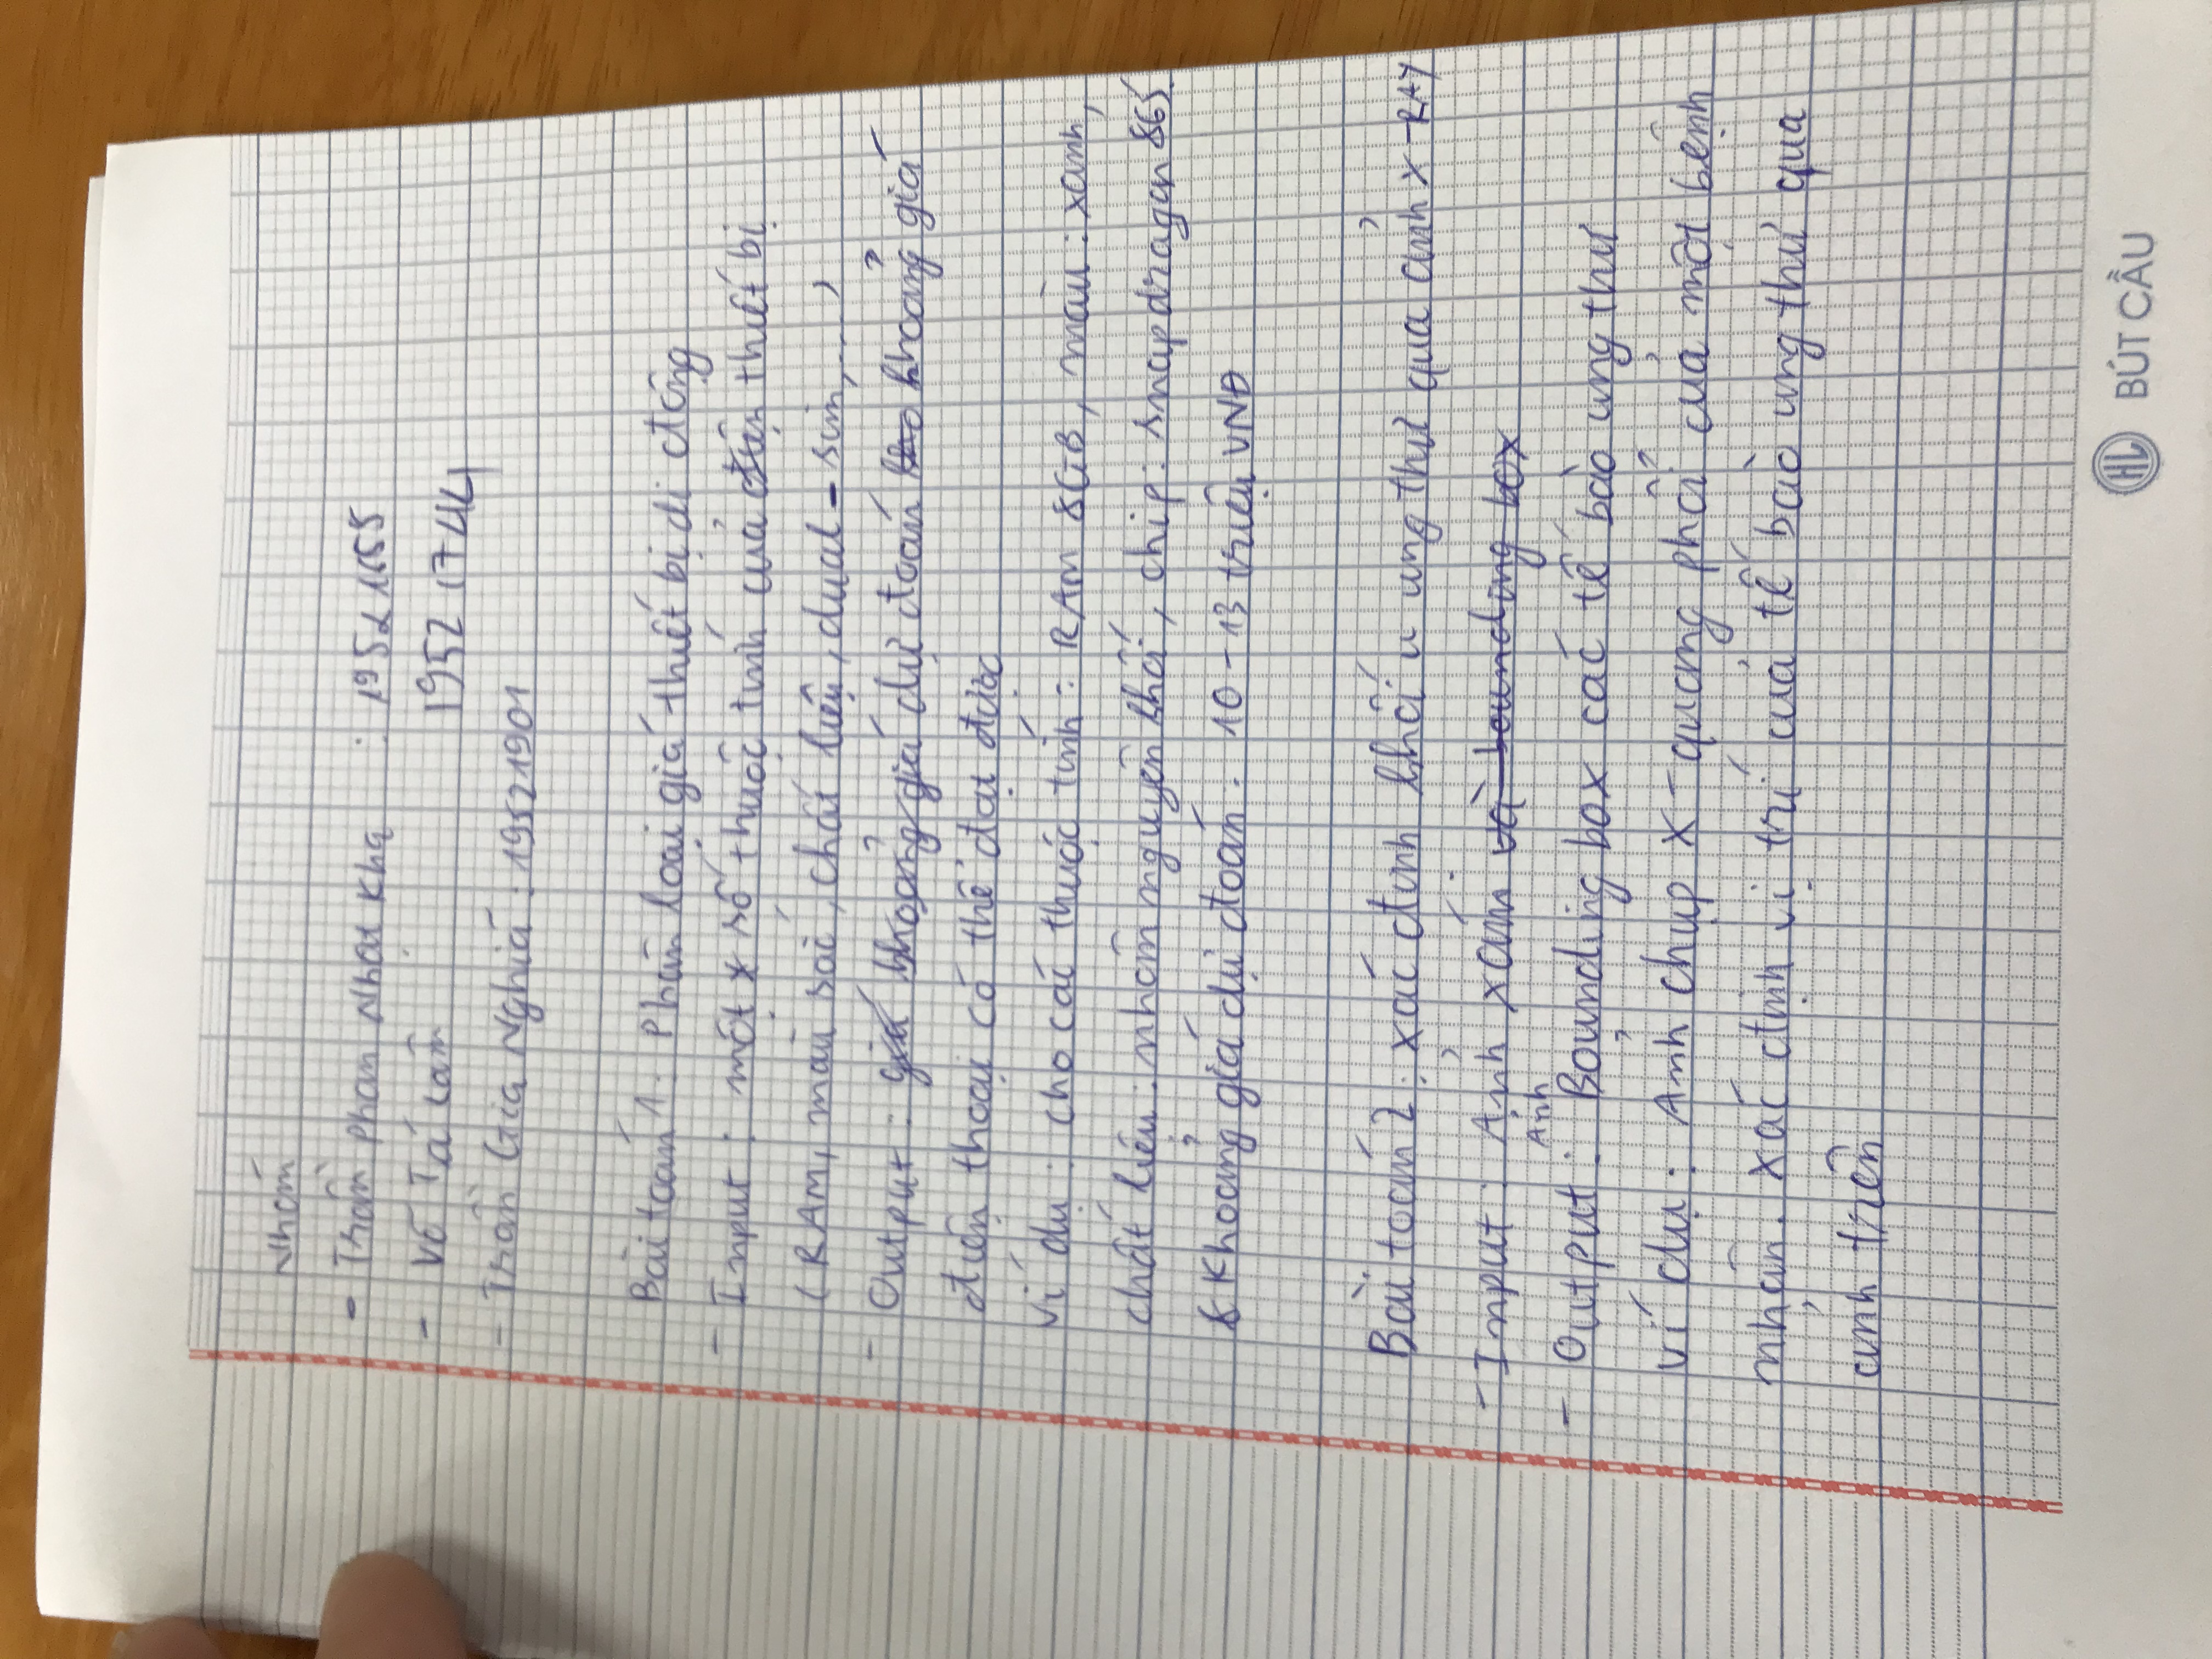 Nhóm
- Trần Phan Nhật Kha : 19521655
- Võ Tá Lâm 19521744
- Trần Gia Nghĩa : 19521901
Bài toán 1: Phân loại giá thiết bị di động
- Input : một số thuộc tính của thiết bị
(RAM, màu sắc, chất liệu, dual-sim,...)
- Output : dự đoán khoảng giá
điện thoại có thể đạt được
Ví dụ : cho các thuộc tính : RAM 8GB, màu : xanh,
chất liệu : nhôm nguyên khối, chip : snapdragon 865.
Khoảng giá dự đoán : 10 - 13 triệu VNĐ
Bài toán 2 : xác định khối u ung thư qua ảnh X-RAY
- Input : Ảnh xám và bounding box
Ảnh
- Output : Bounding box các tế bào ung thư
Ví dụ : Ảnh chụp X-quang phổi của một bệnh
nhân. xác định vị trí của tế bào ung thư qua
ảnh trên
HL BÚT CẦU